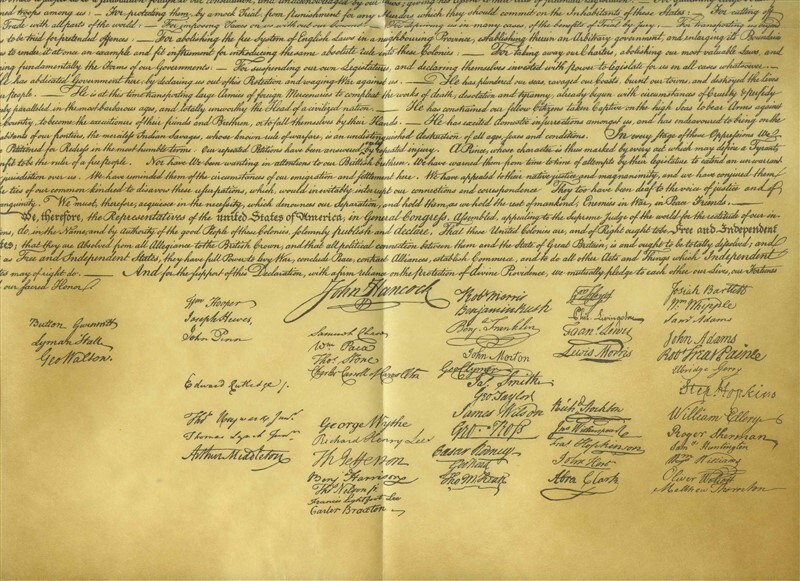 For protecting them, by a mock Trial, from Punishment for any Murders which they should commit on the Inhabitants of these States: — For cutting off
Trade with all parts of the world: — For imposing Taxes on us without our Consent: — For depriving us in many cases, of the benefits of Trial by jury: — For transporting us
to be tried for pretended offences: — For abolishing the free System of English Laws in a neighbouring Province, establishing therein an Arbitrary government, and enlarging its Boundaries
as to render it at once an example and fit instrument for introducing the same absolute rule into these Colonies: — For taking away our Charters, abolishing our most valuable Laws, and
ing fundamentally the Forms of our Governments: — For suspending our own Legislatures, and declaring themselves invested with power to legislate for us in all cases whatsoever. —
He has abdicated Government here, by declaring us out of his Protection and waging War against us. — He has plundered our seas, ravaged our Coasts, burnt our towns, and destroyed the lives
people. — He is at this time transporting large Armies of foreign Mercenaries to compleat the works of death, desolation and tyranny, already begun with circumstances of Cruelty & perfidy
paralleled in the most barbarous ages, and totally unworthy the Head of a civilized nation. — He has constrained our fellow Citizens taken Captive on the high Seas to bear Arms against
Country, to become the executioners of their friends and Brethren, or to fall themselves by their Hands. — He has excited domestic insurrections amongst us, and has endeavoured to bring on the
of our frontiers, the merciless Indian Savages, whose known rule of warfare, is an undistinguished destruction of all ages, sexes and conditions. In every stage of these Oppressions We
Petitioned for Redress in the most humble terms: Our repeated Petitions have been answered only by repeated injury. A Prince, whose character is thus marked by every act which may define a Tyrant,
unfit to be the ruler of a free people. Nor have We been wanting in attentions to our Brittish brethren. We have warned them from time to time of attempts by their legislature to extend an unwarrantable
jurisdiction over us. We have reminded them of the circumstances of our emigration and settlement here. We have appealed to their native justice and magnanimity, and we have conjured them
ties of our common kindred to disavow these usurpations, which, would inevitably interrupt our connections and correspondence. They too have been deaf to the voice of justice and of
We must, therefore, acquiesce in the necessity, which denounces our Separation, and hold them, as we hold the rest of mankind, Enemies in War, in Peace Friends. —
We, therefore, the Representatives of the united States of America, in General Congress, Assembled, appealing to the Supreme Judge of the world for the rectitude of our in-
do, in the Name, and by Authority of the good People of these Colonies, solemnly publish and declare, That these United Colonies are, and of Right ought to be Free and Independent
that they are Absolved from all Allegiance to the British Crown, and that all political connection between them and the State of Great Britain, is and ought to be totally dissolved; and
as Free and Independent States, they have full Power to levy War, conclude Peace, contract Alliances, establish Commerce, and to do all other Acts and Things which Independent
may of right do. — And for the support of this Declaration, with a firm reliance on the protection of divine Providence, we mutually pledge to each other our Lives, our Fortunes
our sacred Honor.
John Hancock
Button Gwinnett
Lyman Hall
Geo Walton.
Wm Hooper
Joseph Hewes,
John Penn
Edward Rutledge /.
Thos Heyward Junr.
Thomas Lynch Junr.
Arthur Middleton
Samuel Chase
Wm Paca
Thos Stone
Charles Carroll of Carrollton
George Wythe
Richard Henry Lee
Th Jefferson
Benj Harrison
Thos Nelson jr.
Francis Lightfoot Lee
Carter Braxton
Robt Morris
Benjamin Rush
Benj. Franklin
John Morton
Geo Clymer
Jas. Smith
Geo. Taylor
James Wilson
Geo. Ross
Caesar Rodney
Geo Read
Tho M:Kean
Wm Floyd
Phil. Livingston
Frans. Lewis
Lewis Morris
Richd. Stockton
Jno Witherspoon
Fras. Hopkinson
John Hart
Abra Clark
Josiah Bartlett
Wm Whipple
Saml Adams
John Adams
Robt Treat Paine
Elbridge Gerry
Step. Hopkins
William Ellery
Roger Sherman
Saml Huntington
Wm Williams
Oliver Wolcott
Matthew Thornton